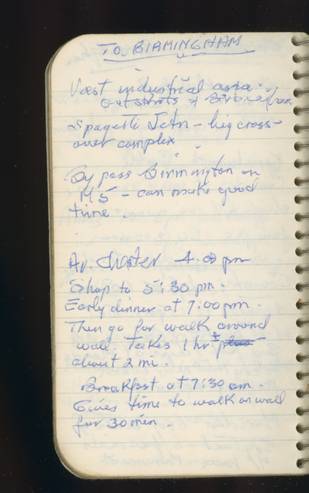 TO BIRMINGHAM
Vast industrial area.
outskirts of
Spagetti Jctn - big cross-
over complex
By pass Birmington on
M5 - can make good
time.
Ar. Chester 4.00 pm
Shop to 5:30 pm.
Early dinner at 7:00 pm.
Then go for walk around
wall. Takes 1 hr ±
about 2 mi.
Breakfast at 7:30 am.
Gives time to walk on wall
for 30 min.